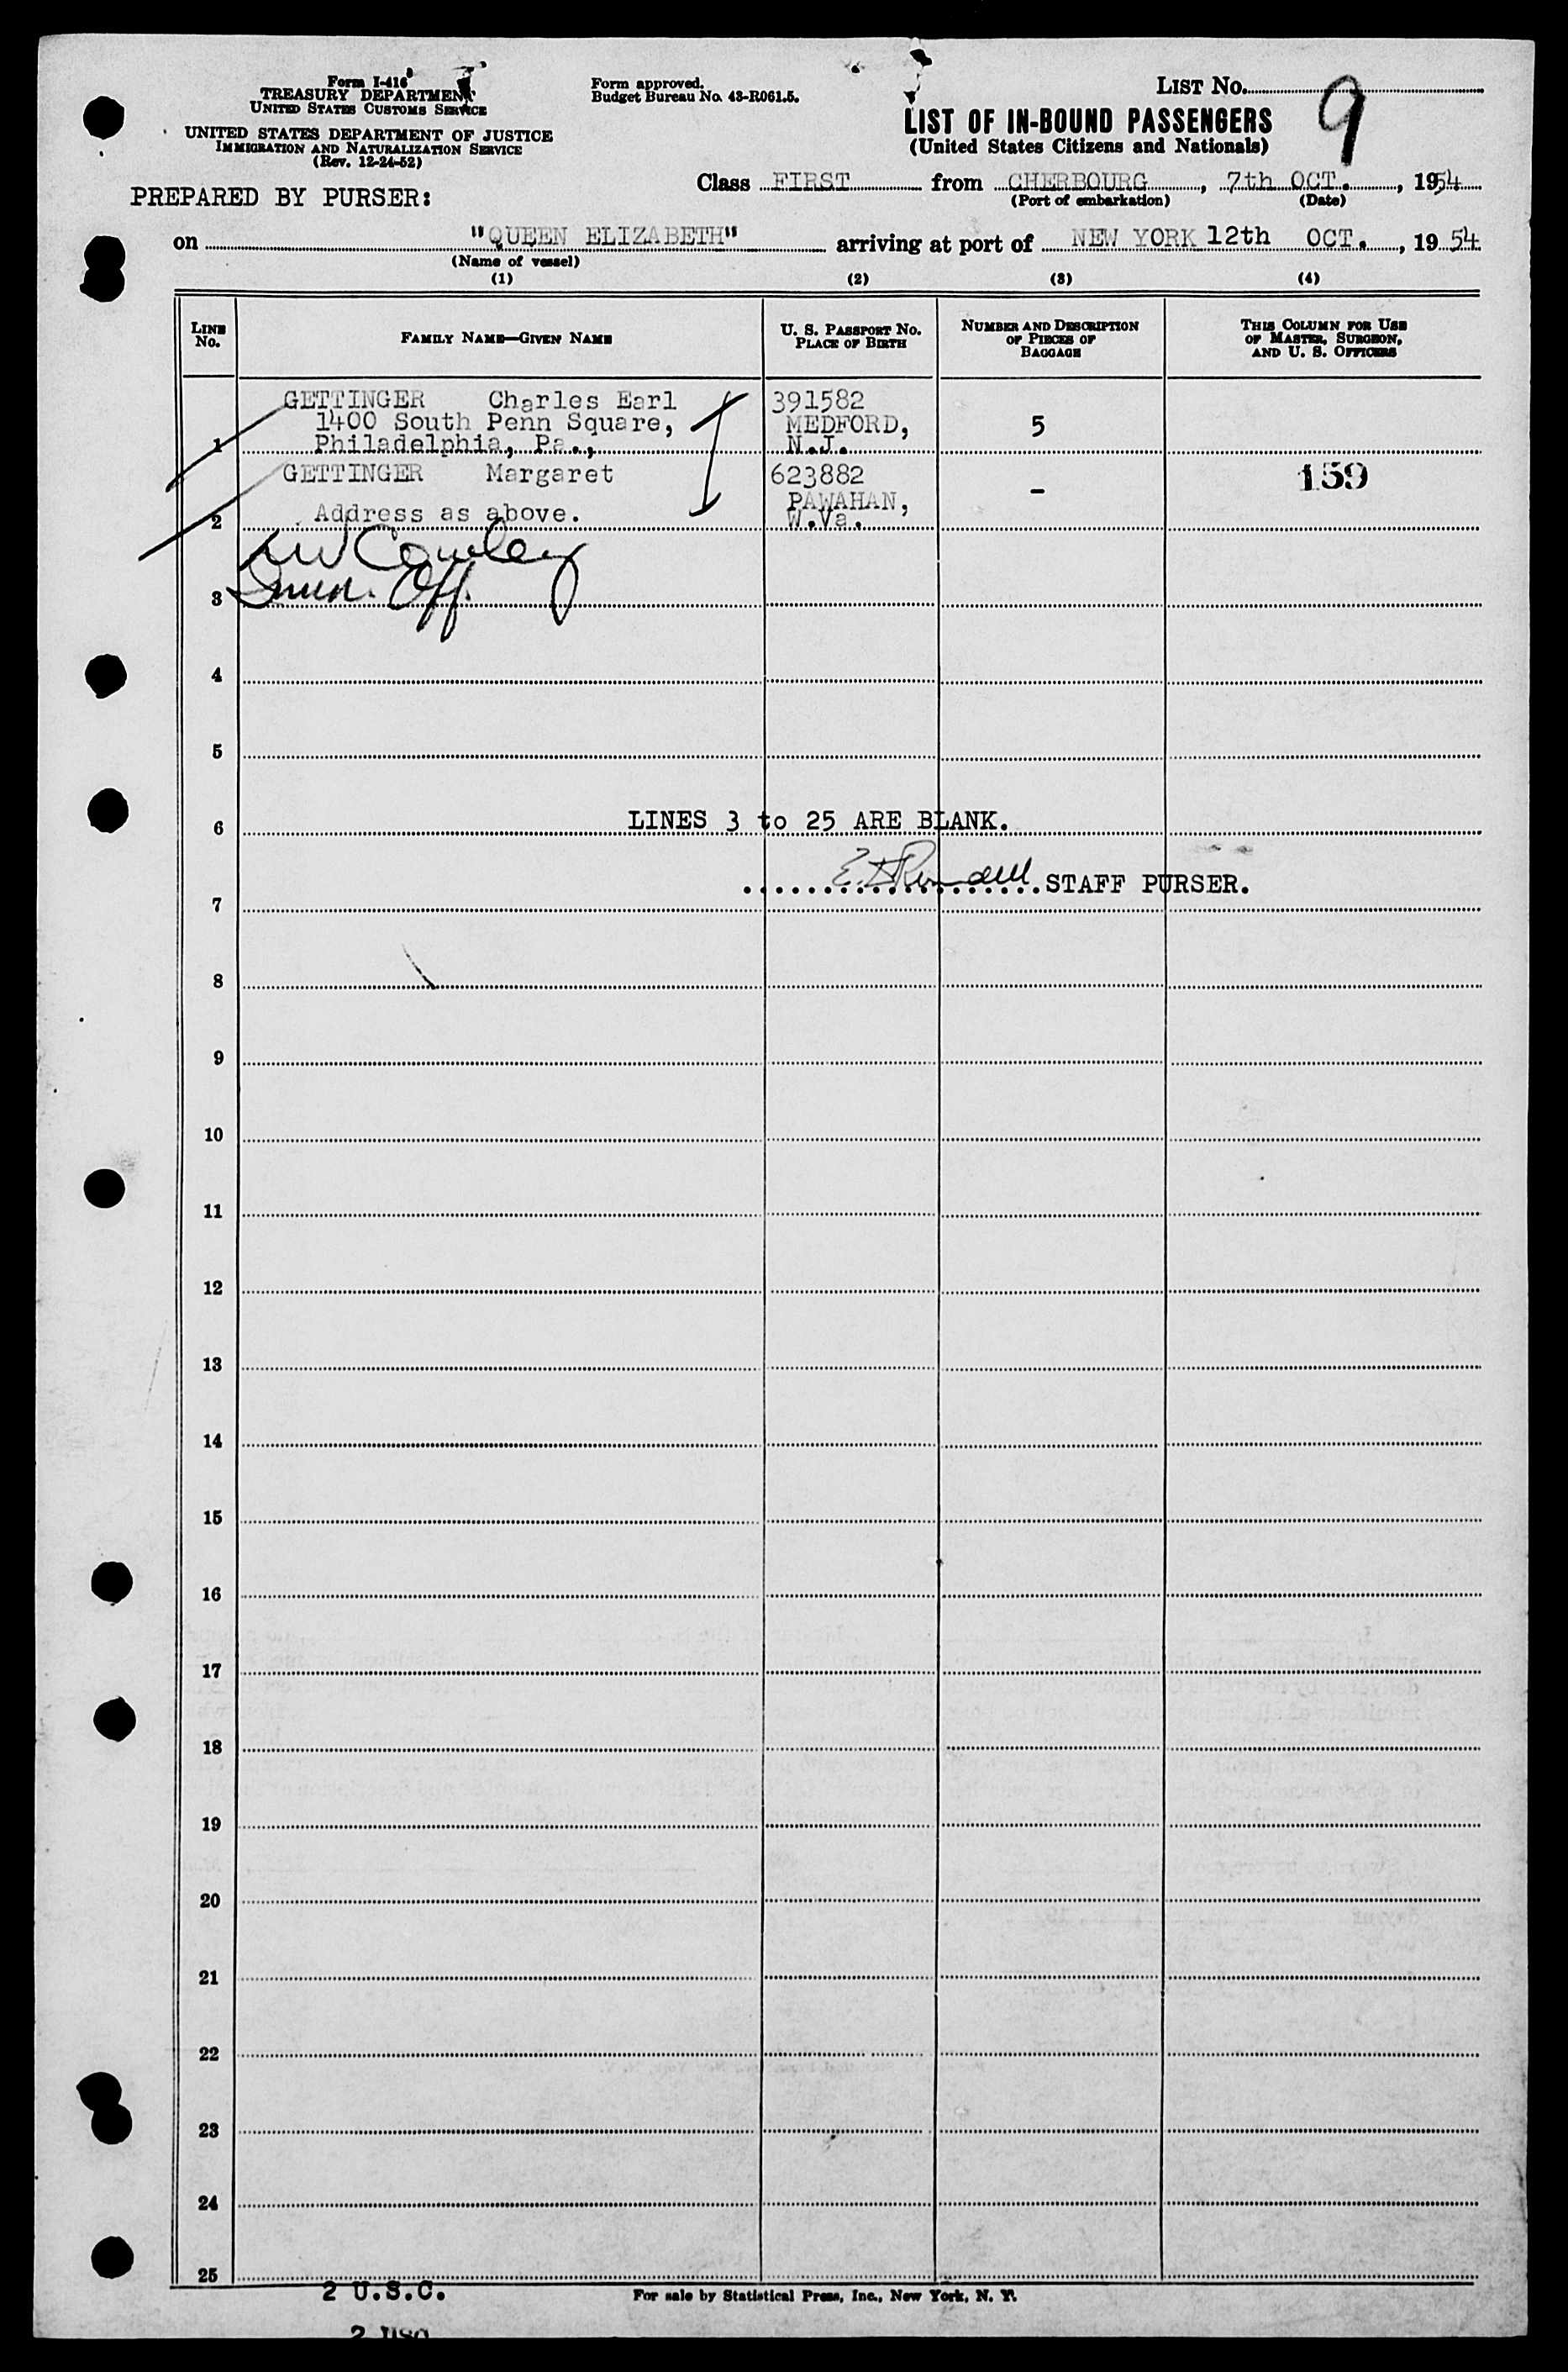 Form I-416
TREASURY DEPARTMENT
UNITED STATES CUSTOMS SERVICE
UNITED STATES DEPARTMENT OF JUSTICE
IMMIGRATION AND NATURALIZATION SERVICE
(Rev. 12-24-52)
PREPARED BY PURSER:
Form approved.
Budget Bureau No. 43-R061.5.
LIST NO. 9
LIST OF IN-BOUND PASSENGERS
(United States Citizens and Nationals)
Class FIRST from CHERBOURG, 7th OCT., 1954
(Port of embarkation) (Date)
on "QUEEN ELIZABETH" arriving at port of NEW YORK 12th OCT., 19 54
(Name of vessel)
(1) (2) (3) (4)
LINE NO.
FAMILY NAME—GIVEN NAME
U. S. PASSPORT NO.
PLACE OF BIRTH
NUMBER AND DESCRIPTION
OF PIECES OF
BAGGAGE
THIS COLUMN FOR USE
OF MASTER, SURGEON,
AND U. S. OFFICERS
GETTINGER Charles Earl 391582
1400 South Penn Square, MEDFORD, 5
1 Philadelphia, Pa., N.J.
GETTINGER Margaret 623882 159
PAWAHAN, -
2 Address as above. W.Va.
Cowley
3 Immn. Off.
4
5
6 LINES 3 to 25 ARE BLANK.
STAFF PURSER.
7
8
9
10
11
12
13
14
15
16
17
18
19
20
21
22
23
24
25
2 U.S.C. For sale by Statistical Press, Inc., New York, N. Y.
2 USC